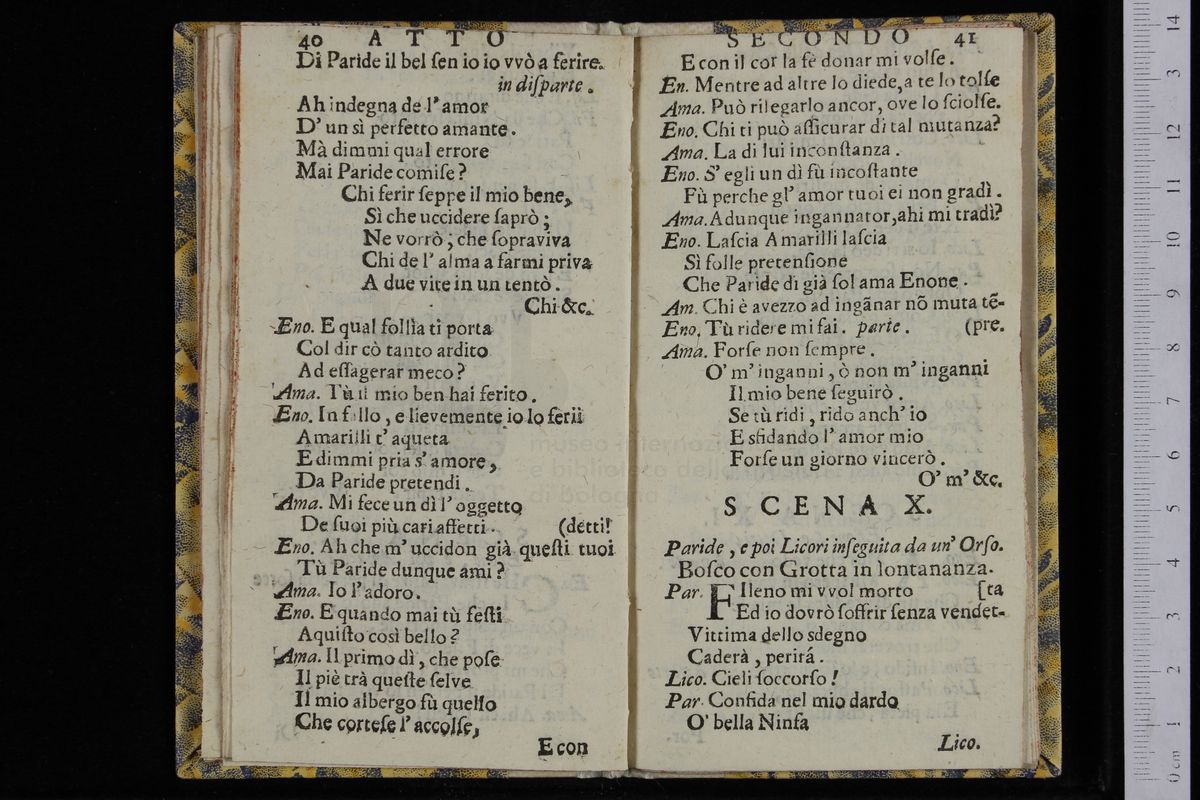 40 ATTO
Di Paride il bel ſen io io vvò a ferire.
in diſparte.
Ah indegna de l' amor
D' un sì perfetto amante.
Mà dimmi qual errore
Mai Paride comiſe?
Chi ferir ſeppe il mio bene,
Sì che uccidere ſaprò;
Ne vorrò; che ſopraviva
Chi de l' alma a farmi priva
A due vite in un tentò.
Chi &c.
Eno. E qual follìa ti porta
Col dir cò tanto ardito
Ad eſſagerar meco?
Ama. Tù il mio ben hai ferito.
Eno. In fallo, e lievemente io lo ferii
Amarilli t' aqueta
E dimmi pria s' amore,
Da Paride pretendi.
Ama. Mi fece un dì l' oggetto
De ſuoi più cari affetti. (detti!
Eno. Ah che m' uccidon già queſti tuoi
Tù Paride dunque ami?
Ama. Io l' adoro.
Eno. E quando mai tù feſti
Aquiſto così bello?
Ama. Il primo dì, che poſe
Il piè trà queſte ſelve
Il mio albergo fù quello
Che corteſe l' accolſe,
E con
SECONDO 41
E con il cor la fè donar mi volſe.
En. Mentre ad altre lo diede, a te lo tolſe
Ama. Può rilegarlo ancor, ove lo ſciolſe.
Eno. Chi ti può aſſicurar di tal mutanza?
Ama. La di lui inconſtanza.
Eno. S' egli un dì fù incoſtante
Fù perche gl' amor tuoi ei non gradì.
Ama. Adunque ingannator, ahi mi tradì?
Eno. Laſcia Amarilli laſcia
Sì folle pretenſione
Che Paride di già ſol ama Enone.
Am. Chi è avezzo ad ingãnar nõ muta tẽ-
Eno. Tù ridere mi fai. parte. (pre.
Ama. Forſe non ſempre.
O' m' inganni, ò non m' inganni
Il mio bene ſeguirò.
Se tù ridi, rido anch' io
E sfidando l' amor mio
Forſe un giorno vincerò.
O' m' &c.
SCENA X.
Paride, e poi Licori inſeguita da un' Orſo.
Boſco con Grotta in lontananza.
Par. FIleno mi vvol morto [ta
Ed io dovrò ſoffrir ſenza vendet-
Vittima dello sdegno
Caderà, perirá.
Lico. Cieli ſoccorſo!
Par. Confida nel mio dardo
O' bella Ninfa
Lico.